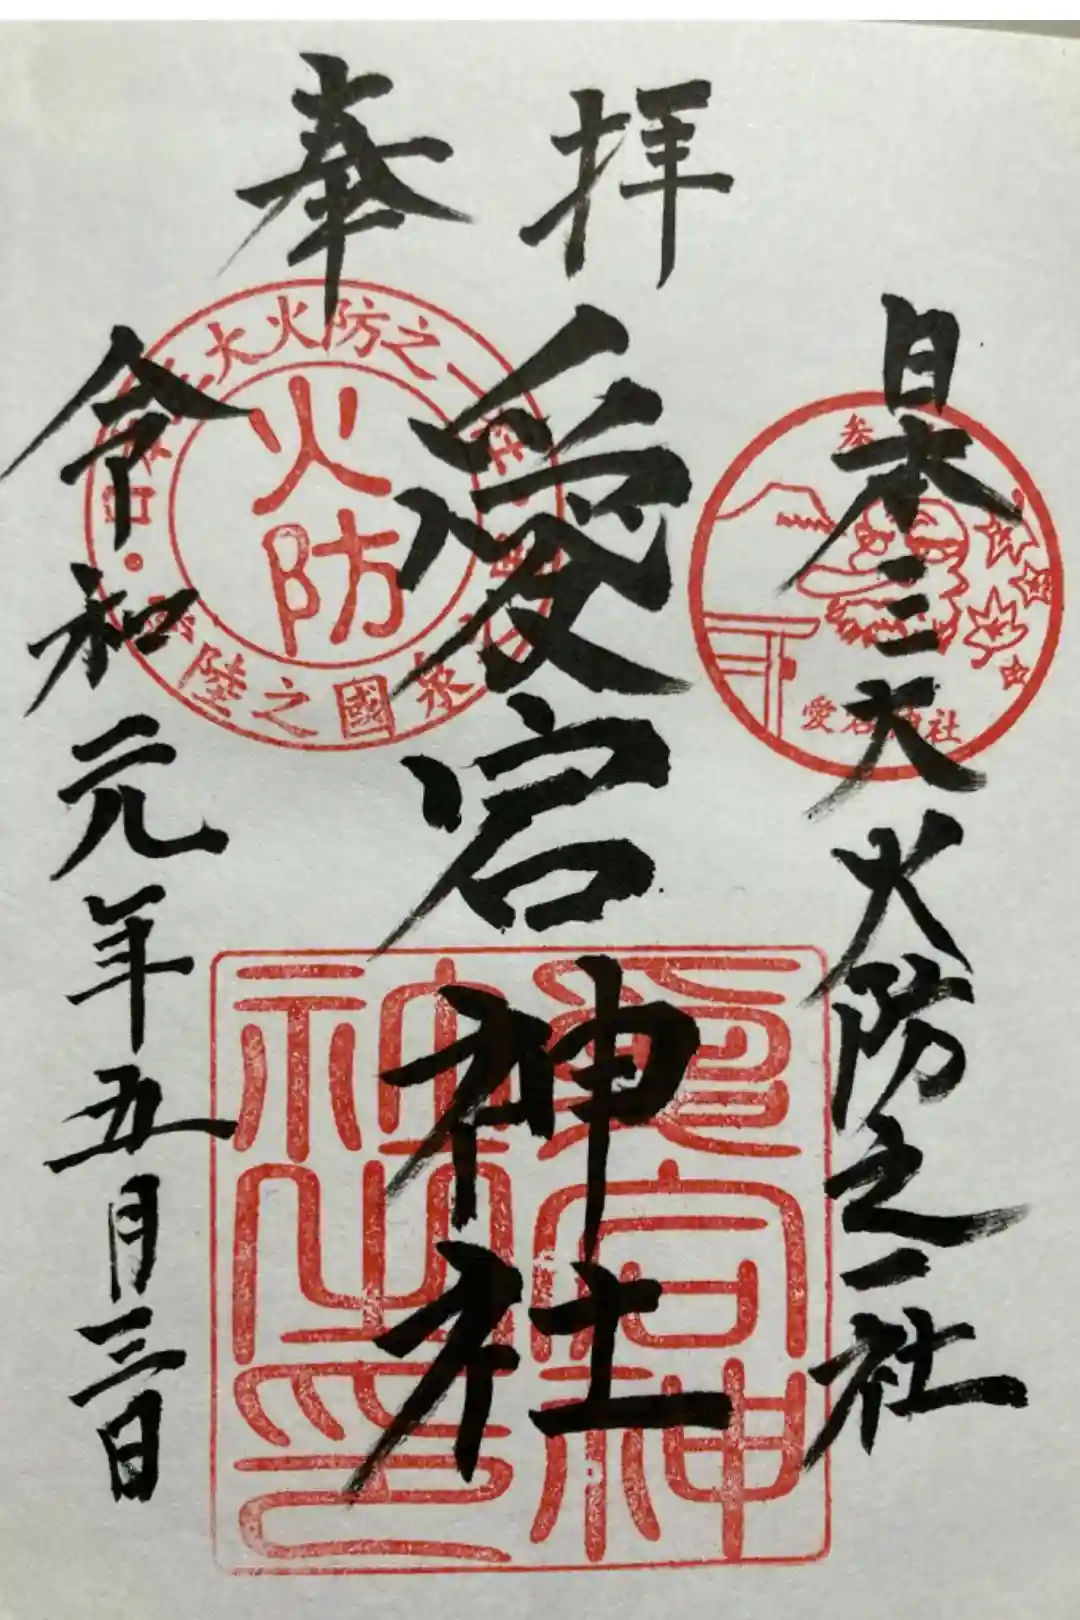 奉拝
日本三大火防之一社
愛宕神社
令和元年五月三日
火防
大火防之一
陸之國
愛宕神社
愛宕神社之印